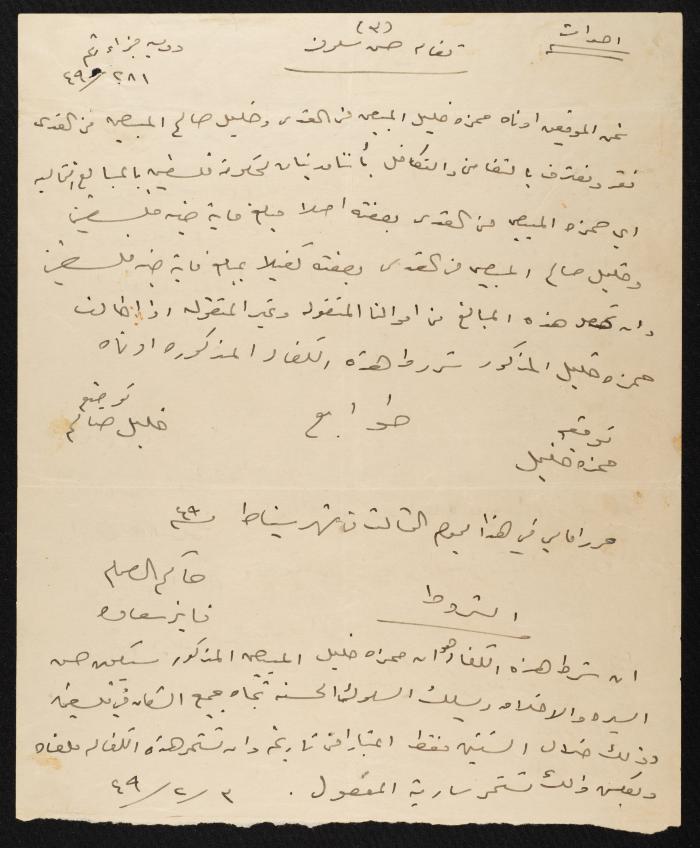 (٣)
احداث
كفاله حسن سلوك
دوسيه جزاء نمرة
٤٩/٢٨١
نحن الموقعين ادناه حمزه خليل المبيض من القدس وخليل صالح المبيض من القدس
نقر ونعترف بالتضامن والتكافل بأننا مدينان لحكومة فلسطين بالمبالغ التاليه
اي حمزه المبيض من القدس بصفته اصلا مبلغ ماية جنيه فلسطيني
وخليل صالح المبيض من القدس بصفته كفيلا بمبلغ ماية جنيه فلسطيني
وان تحصل هذه المبالغ من اموالنا المنقوله وغير المنقوله اذا خالف
حمزه خليل المذكور شروط هذه الكفاله المذكوره ادناه
توقيع
حمزه خليل
طوابع
توقيع
خليل صالح
حرر امامي في هذا اليوم الثالث من شهر شباط ٤٩
حاكم الصلح
فايز
الشروط
ان شرط هذه الكفاله هو ان حمزه خليل المبيض المذكور سيكون حسن
السيره والاخلاق ويسلك السلوك الحسن تجاه جميع السكان في فلسطين
وذلك خلال السنتين فقط اعتبارا من تاريخه وان تستمر هذه الكفاله ملغاه
وبعكس ذلك تستمر سارية المفعول . ٣/٢/٤٩